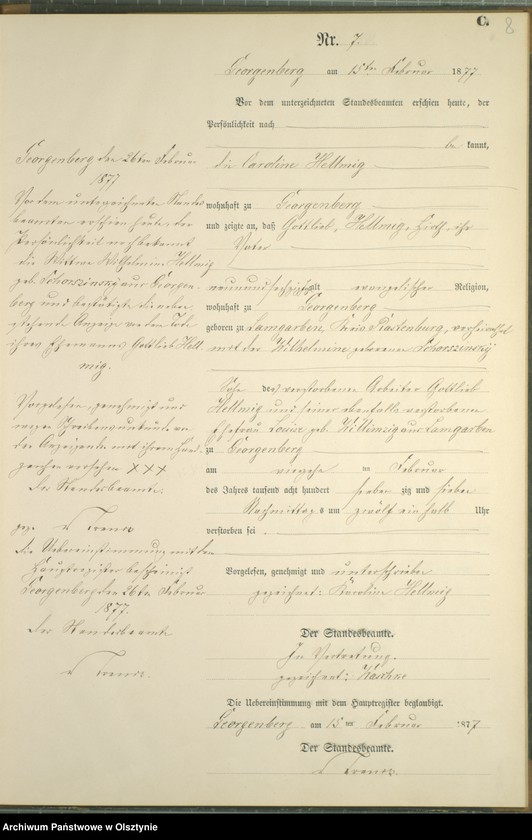 C. 8
Nr. 7
Georgenberg am 15ten Februar 1877
Vor dem unterzeichneten Standesbeamten erschien heute, der
Persönlichkeit nach
be kannt,
die Caroline Hellmig
wohnhaft zu Georgenberg
und zeigte an, daß Gottlieb Hellmig, ihr
Vater
neunundsechzig alt evangelischer Religion,
wohnhaft zu Georgenberg
geboren zu Lamgarben, Kreis Rastenburg, verheirathet
mit der Wilhelmine geborenen
Sohn des verstorbenen Arbeiter Gottlieb
Hellmig und seiner ebenfalls verstorbenen
Ehefrau Louise geb. aus Lamgarben
zu Georgenberg
am ten Februar
des Jahres tausend acht hundert sieben zig und sieben
Nachmittag s um zwölf ein halb Uhr
verstorben sei
Vorgelesen, genehmigt und unterschrieben
gezeichnet: Karoline Hellmig
Der Standesbeamte.
In Vertretung.
gezeichnet:
Die Uebereinstimmung mit dem Hauptregister beglaubigt.
Georgenberg am 15 ten Februar 1877
Der Standesbeamte.
Georgenberg den 26ten Februar
1877
Vor dem unterzeichneten Standes
beamten erschien heute, der
Persönlichkeit nach bekannt
die Wittwe Wilhelmine Hellmig
geb. aus Georgen-
berg und bestätigte die neben
stehende Anzeige von dem Tode
ihres Ehemannes Gottlieb Hell-
mig.
Vorgelesen, genehmigt und
wegen Schreibensunkunde von
der mit ihrem Hand-
zeichen versehen XXX
Der Standesbeamte.
gez.
die Uebereinstimmung mit dem
Hauptregister bescheinigt
Georgenberg den 26ten Februar
1877.
Der Standesbeamte
Archiwum Państwowe w Olsztynie